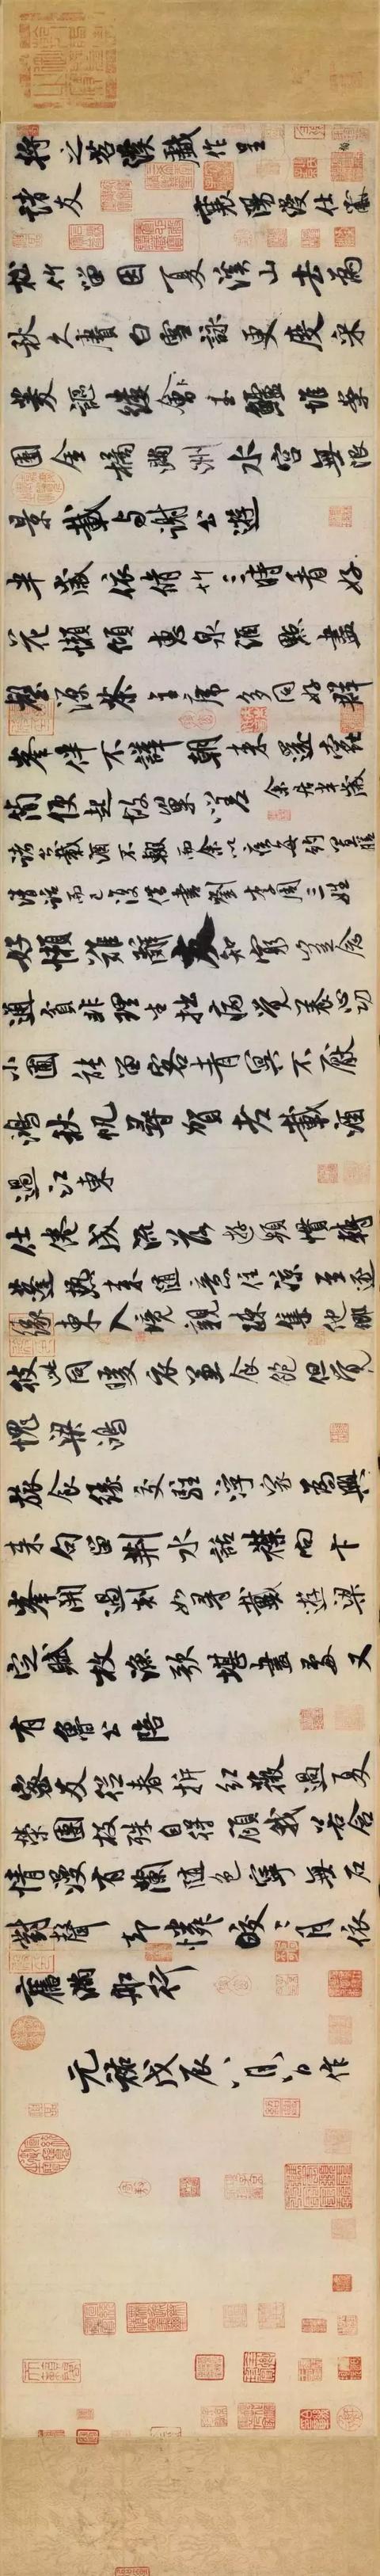 將之苕溪戲作呈
諸友 襄陽漫仕黻
松竹留因夏溪山去為
秋久賡白雪詠更度采
菱謳縷會玉鱸堆案
團金橘滿洲水宮無限
景載与謝公遊
半歲依脩竹三時看好
花懶傾惠泉酒點盡
壑源茶主席多同好群
峯伴不譁朝來還蠹
簡便起故巢嗟 余居半歲
諸公載酒不輟而余以疾每約置膳
清話而已復借書劉李周三姓
好懶難辭友知窮豈念
通貧非理生拙病覺養心功
小圃能留客青冥不厭
鴻秋帆尋賀老載酒
過江東
仕倦成流落遊頻慣轉
蓬熱來隨意住涼至逐
緣東入境親疎集他鄉
彼此同暖衣兼食飽但覺
愧梁鴻
旅食緣交駐浮家為興
來句留荊水話襟向卞
峯開過剡如尋戴遊梁
定賦枚漁歌堪畫處又
有魯公陪
密友從春拆紅薇過夏
榮團枝殊自得顧我若含
情漫有蘭隨色寧無石
對聲却憐皎皎月依
舊滿舡行
元祐戊辰八月八日作